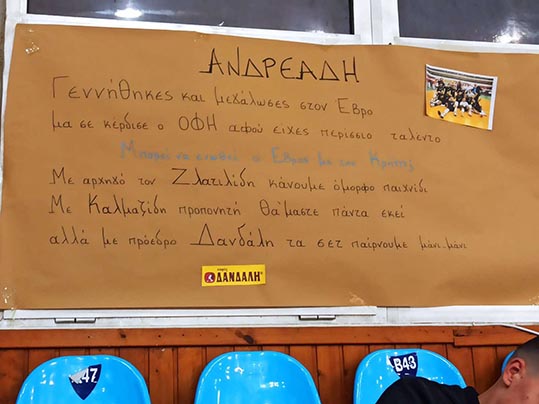 ΑΝΔΡΕΑΔΗ
Γεννήθηκες και μεγάλωσες στον Έβρο
μα σε κέρδισε ο ΟΦΗ αφού είχες περίσσιο ταλέντο
Μπορεί να ενωθεί ο Έβρος με την Κρήτη
Με αρχηγό τον Ζλατιλίδη κάνουμε όμορφο παιχνίδι
Με Καλμαζίδη προπονητή θα'μαστε πάντα εκεί
αλλά με πρόεδρο Δανδάλη τα σετ παίρνουμε μάνι-μάνι
ΔΑΝΔΑΛΗ
47
B43